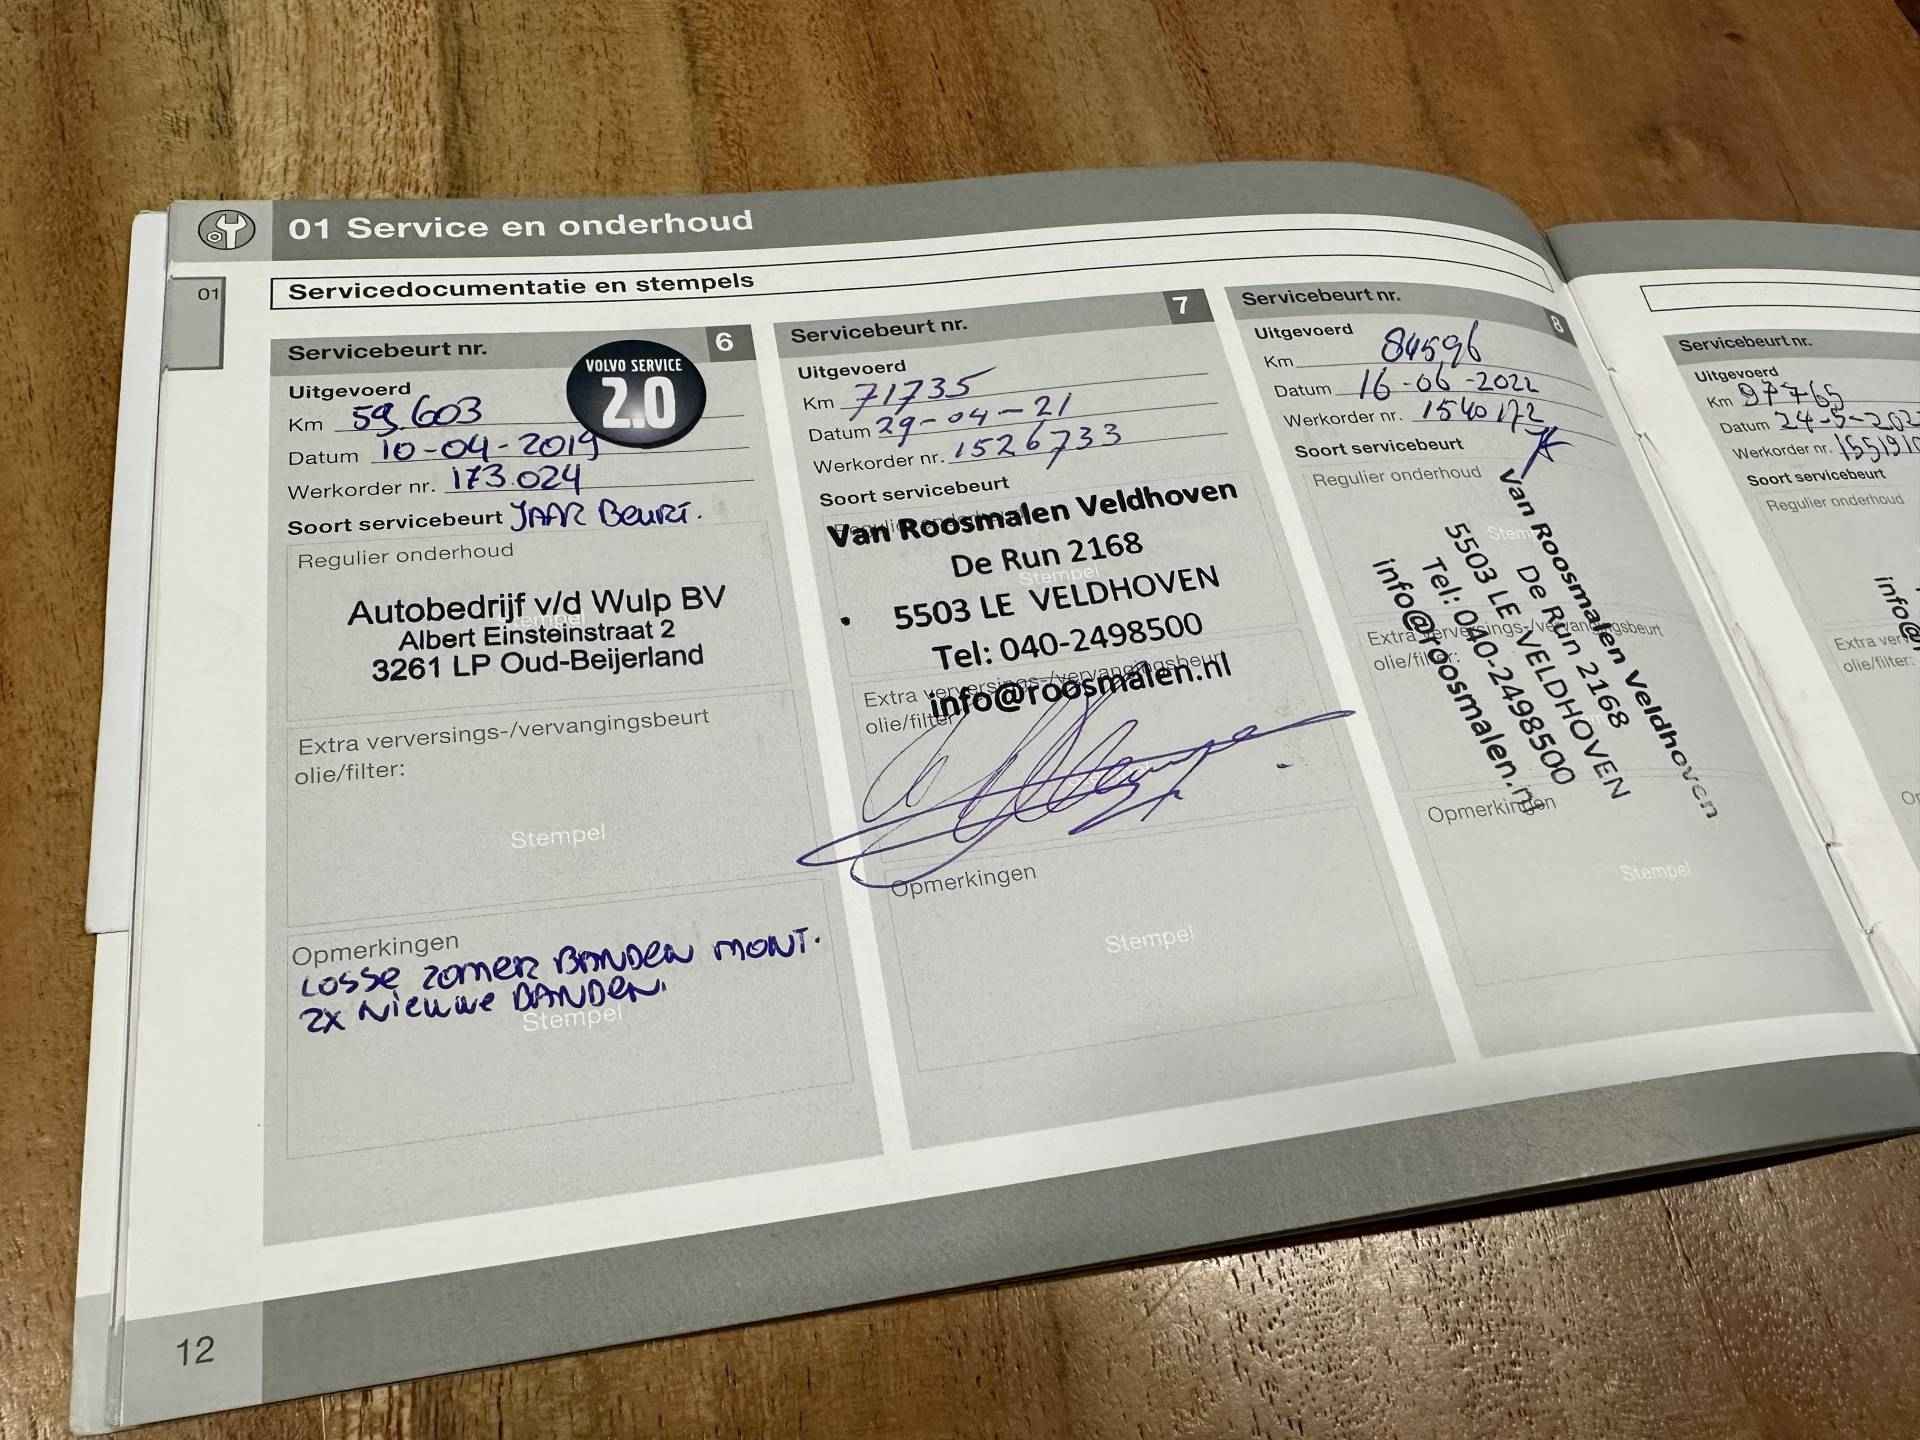 01 Service en onderhoud
01
Servicedocumentatie en stempels
Servicebeurt nr. 6
VOLVO SERVICE
2.0
Uitgevoerd
Km 59.603
Datum 10-04-2019
Werkorder nr. 173.024
Soort servicebeurt JAAR BEURT.
Regulier onderhoud
Stempel
Autobedrijf v/d Wulp BV
Albert Einsteinstraat 2
3261 LP Oud-Beijerland
Extra verversings-/vervangingsbeurt
olie/filter:
Stempel
Opmerkingen
LOSSE ZOMER BANDEN MONT.
2X NIEUWE BANDEN.
Stempel
Servicebeurt nr. 7
Uitgevoerd
Km 71735
Datum 29-04-21
Werkorder nr. 1526733
Soort servicebeurt
Regulier onderhoud
Van Roosmalen Veldhoven
De Run 2168
Stempel
5503 LE VELDHOVEN
Tel: 040-2498500
Extra verversings-/vervangingsbeurt
info@roosmalen.nl
olie/filter
Opmerkingen
Stempel
Servicebeurt nr. 8
Uitgevoerd
Km 84596
Datum 16-06-2022
Werkorder nr. 1540172
Soort servicebeurt
Regulier onderhoud
Stem
Van Roosmalen Veldhoven
De Run 2168
5503 LE VELDHOVEN
Tel: 040-2498500
info@roosmalen.nl
Extra verversings-/vervangingsbeurt
olie/filter:
Opmerkingen
Stempel
Servicebeurt nr.
Uitgevoerd
Km 97765
Datum 24-5-202
Werkorder nr. 1551910
Soort servicebeurt
Regulier onderhoud
info@
Extra ver
olie/filter:
Op
12